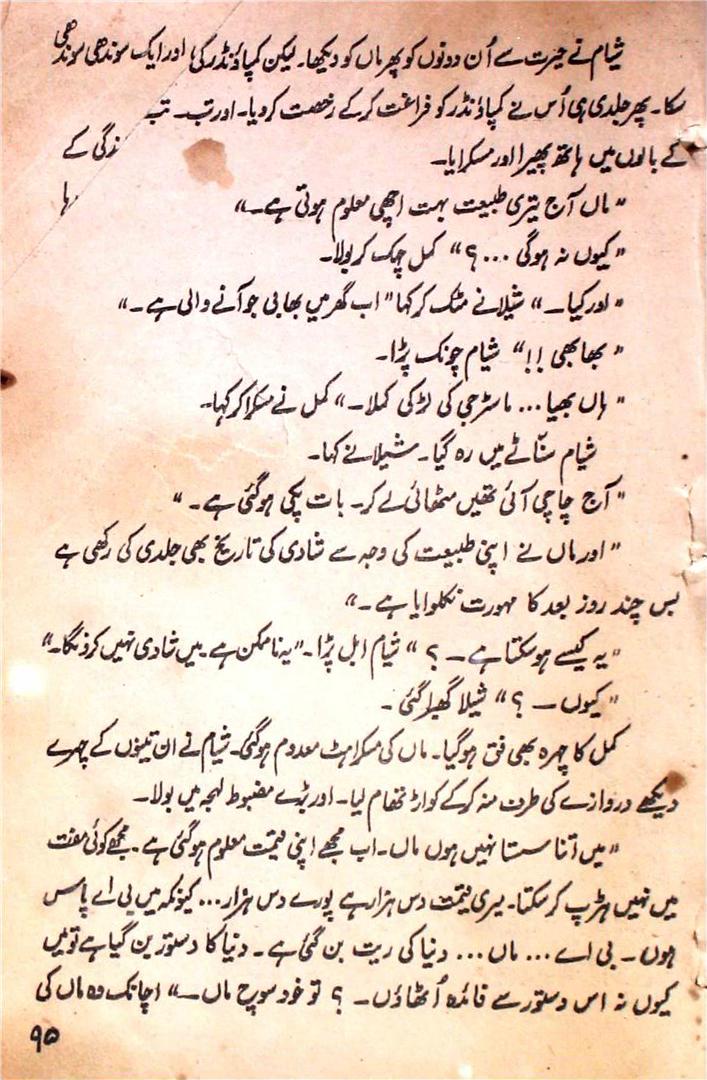 شیام نے حیرت سے اُن دونوں کو پھر ماں کو دیکھا۔ لیکن کمپاؤنڈر کی اور ایک سوندھی سوندھی
سکا۔ پھر جلدی ہی اُس نے کمپاؤنڈر کو فراغت کرکے رخصت کردیا۔ اور تب۔ تب
کے بالوں میں ہاتھ پھیرا اور مسکرایا۔ ندگی کے
"ماں آج تیری طبیعت بہت اچھی معلوم ہوتی ہے۔" ہا
"کیوں نہ ہوگی ...؟" کمل چہک کر بولا۔
"اور کیا۔" شیلا نے مٹک کر کہا "اب گھر میں بھابی جو آنے والی ہے۔"
"بھابھی !!" شیام چونک پڑا۔
"ہاں بھیا... ماسٹر جی کی لڑکی کملا۔" کمل نے مسکرا کر کہا۔
شیام سنّاٹے میں رہ گیا۔ شیلا نے کہا۔
"آج چاچی آئی تھیں مٹھائی لے کر۔ بات پکی ہوگئی ہے۔"
"اور ماں نے اپنی طبیعت کی وجہ سے شادی کی تاریخ بھی جلدی کی رکھی ہے
بس چند روز بعد کا مہورت نکلوایا ہے۔"
"یہ کیسے ہوسکتا ہے۔ ؟" شیام ابل پڑا۔ "یہ ناممکن ہے میں شادی نہیں کرونگا۔"
"کیوں ۔ ؟" شیلا گھبرا گئی۔
کمل کا چہرہ بھی فق ہوگیا۔ ماں کی مسکراہٹ معدوم ہوگئی۔ شیام نے ان تینوں کے چہرے
دیکھے دروازے کی طرف منہ کرکے کواڑ تھام لیا۔ اور بڑے مضبوط لہجہ میں بولا۔
"میں اتنا سستا نہیں ہوں ماں۔ اب مجھے اپنی قیمت معلوم ہوگئی ہے۔ مجھے کوئی مفت
میں نہیں ہڑپ کرسکتا۔ میری قیمت دس ہزار ہے پورے دس ہزار... کیونکہ میں بی اے پاس
ہوں۔ بی اے ... ماں ... دنیا کی ریت بن گئی ہے۔ دنیا کا دستور بن گیا ہے تو میں
کیوں نہ اس دستور سے فائدہ اُٹھاؤں۔ ؟ تو خود سوچ ماں۔" اچانک وہ ماں کی
۹۵